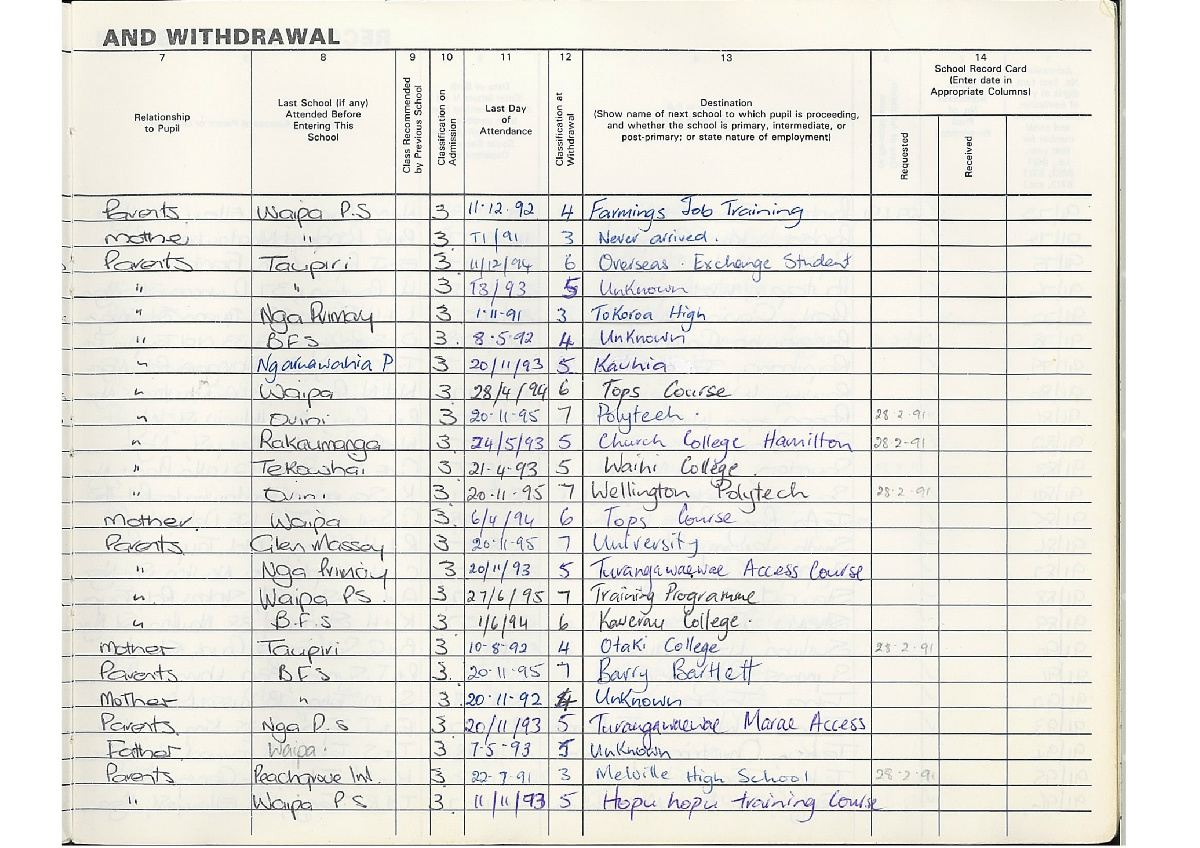 AND WITHDRAWAL
7 8 9 10 11 12 13 14
Relationship to Pupil
Last School (if any) Attended Before Entering This School
Class Recommended by Previous School
Classification on Admission
Last Day of Attendance
Classification at Withdrawal
Destination
(Show name of next school to which pupil is proceeding, and whether the school is primary, intermediate, or post-primary; or state nature of employment)
School Record Card
(Enter date in Appropriate Columns)
Requested
Received
Parents Waipa P.S 3 11·12·92 4 Farmings Job Training
Mother " 3 T1/91 3 Never arrived.
Parents Taupiri 3 11/12/94 6 Overseas · Exchange Student
" " 3 T3/93 5 Unknown
" Nga Primary 3 1·11·91 3 Tokoroa High
" BFS 3 8·5·92 4 Unknown
" Ngaruawahia P 3 20/11/93 5 Kawhia
" Waipa 3 28/4/94 6 Tops Course
" Ouini 3 20·11·95 7 Polytech · 28·2·91
" Rakaumanga 3 24/5/93 5 Church College Hamilton 28·2·91
" Tekowhai 3 21·4·93 5 Waihi College
" Ouini 3 20·11·95 7 Wellington Polytech 28·2·91
Mother. Waipa 3. 6/4/94 6 Tops Course
Parents Glen Massey 3 20·11·95 7 University
" Nga Primary 3 20/11/93 5 Turangawaewae Access Course
" Waipa PS. 3 27/6/95 7 Training Programme
" B.F.S 3 1/6/94 6 Kawerau College ·
Mother Taupiri 3 10-8-92 4 Otaki College 28·2·91
Parents BFS 3. 20·11·95 7 Barry Bartlett
Mother " 3 20·11·92 4 Unknown
Parents. Nga P.S 3 20/11/93 5 Turangawaewae Marae Access
Father Waipa · 3 7·5·93 5 Unknown
Parents Peachgrove Int. 3 22·7·91 3 Melville High School 28·2·91
" Waipa P S 3 11/11/93 5 Hopu hopu training Course